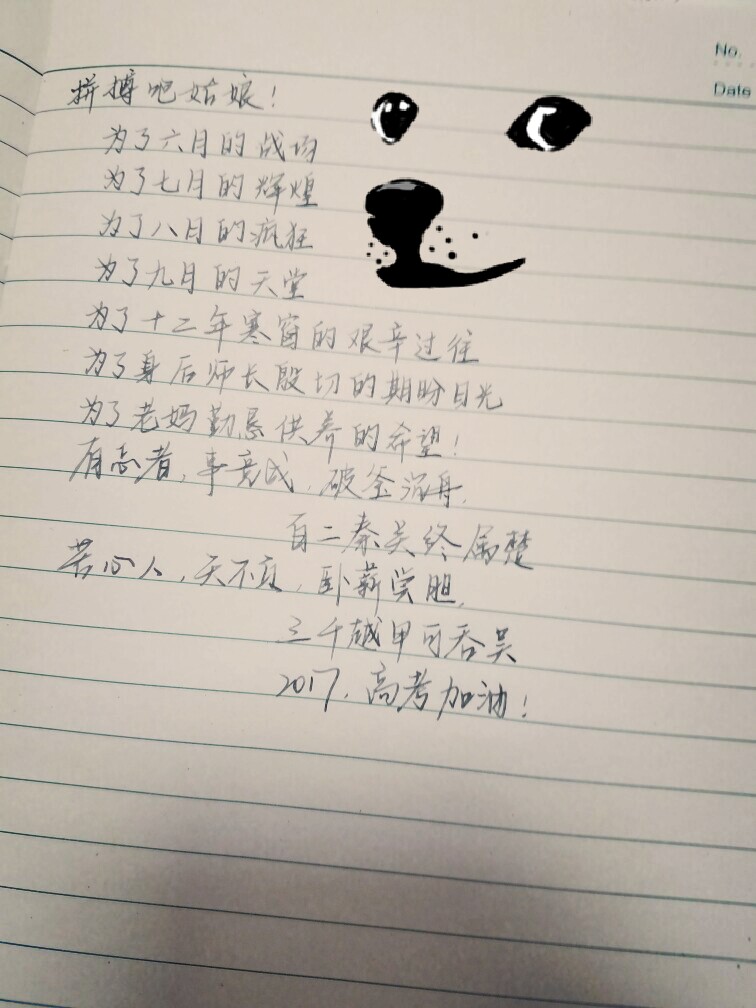 No.
Date
拼搏吧姑娘！
为了六月的战场
为了七月的辉煌
为了八月的疯狂
为了九月的天堂
为了十二年寒窗的艰辛过往
为了身后师长殷切的期盼目光
为了老妈勤恳供养的希望！
有志者，事竟成，破釜沉舟，
百二秦关终属楚
苦心人，天不负，卧薪尝胆，
三千越甲可吞吴
2017，高考加油！